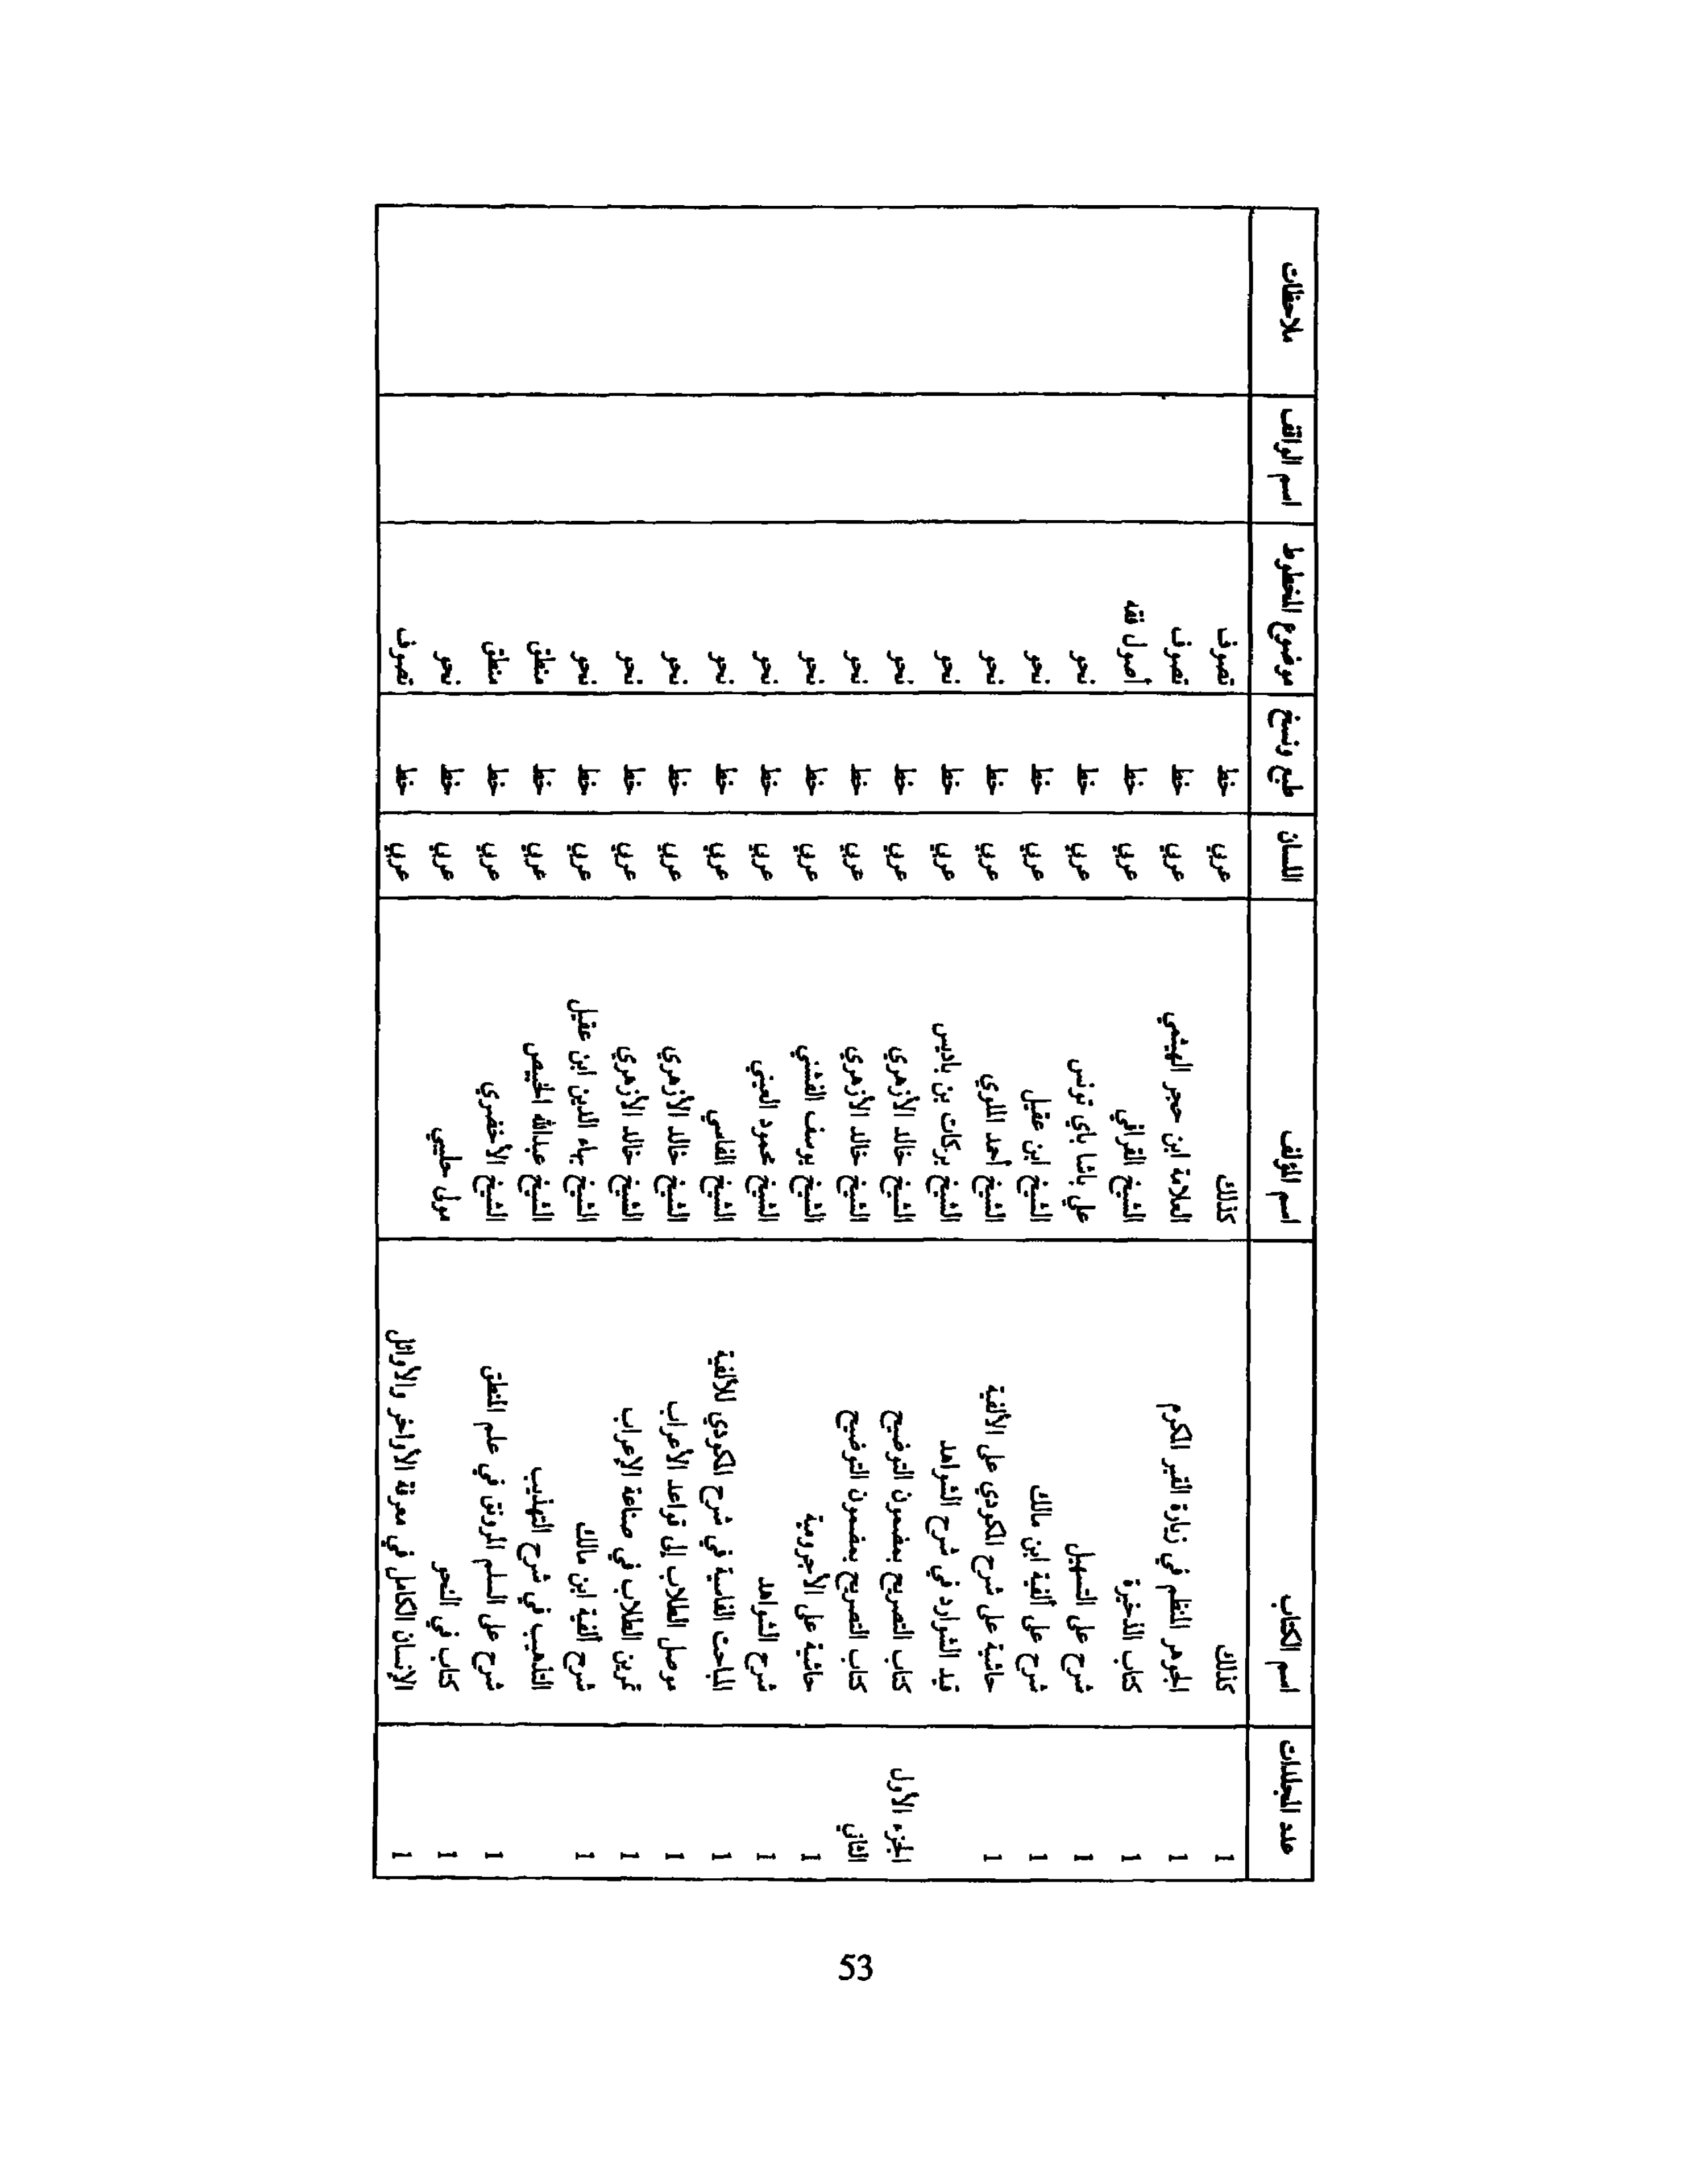 عدد المجلدات | اسم الكتاب | اسم المؤلف | اللسان | طبع ونسخ | موضوع المخطوط | اسم الواقف | ملاحظات
1 | كذلك | كذلك | عربي | خط | تصوف
1 | الجوهر المنظم في زيارة القبر المكرم | العلامة ابن حجر الهيثمي | عربي | خط | تصوف
1 | كتاب الذخيرة | الشيخ القرافي | عربي | خط | أصول فقه
1 | شرح على التسهيل | علي باشا باي تونس | عربي | خط | نحو
1 | شرح على ألفية ابن مالك | الشيخ ابن عقيل | عربي | خط | نحو
1 | حاشية على شرح المكودي على الألفية | الشيخ أحمد الملوي | عربي | خط | نحو
قيد الشوارد في شرح الشواهد | الشيخ بركات بن باديس | عربي | خط | نحو
الجزء الأول | كتاب التصريح بمضمون التوضيح | الشيخ خالد الأزهري | عربي | خط | نحو
الثاني | كتاب التصريح بمضمون التوضيح | الشيخ خالد الأزهري | عربي | خط | نحو
1 | حاشية على الأجرومية | الشيخ يوسف الفشني | عربي | خط | نحو
1 | شرح الشواهد | الشيخ محمود العيني | عربي | خط | نحو
1 | المباحث الفاسية في شرح المكودي للألفية | الشيخ الفاسي | عربي | خط | نحو
1 | موصل الطلاب إلى قواعد الأعراب | الشيخ خالد الأزهري | عربي | خط | نحو
1 | تمرين الطلاب في صناعة الإعراب | الشيخ خالد الأزهري | عربي | خط | نحو
1 | شرح ألفية ابن مالك | الشيخ بهاء الدين ابن عقيل | عربي | خط | نحو
التذهيب في شرح التهذيب | الشيخ عبدالله الخبيص | عربي | خط | منطق
1 | شرح على السلم المرونق في علم المنطق | الشيخ الأخضري | عربي | خط | منطق
1 | كتاب في النحو | مولى حلبي | عربي | خط | نحو
1 | الإنسان الكامل في معرفة الأواخر والأوائل | عربي | خط | تصوف
53